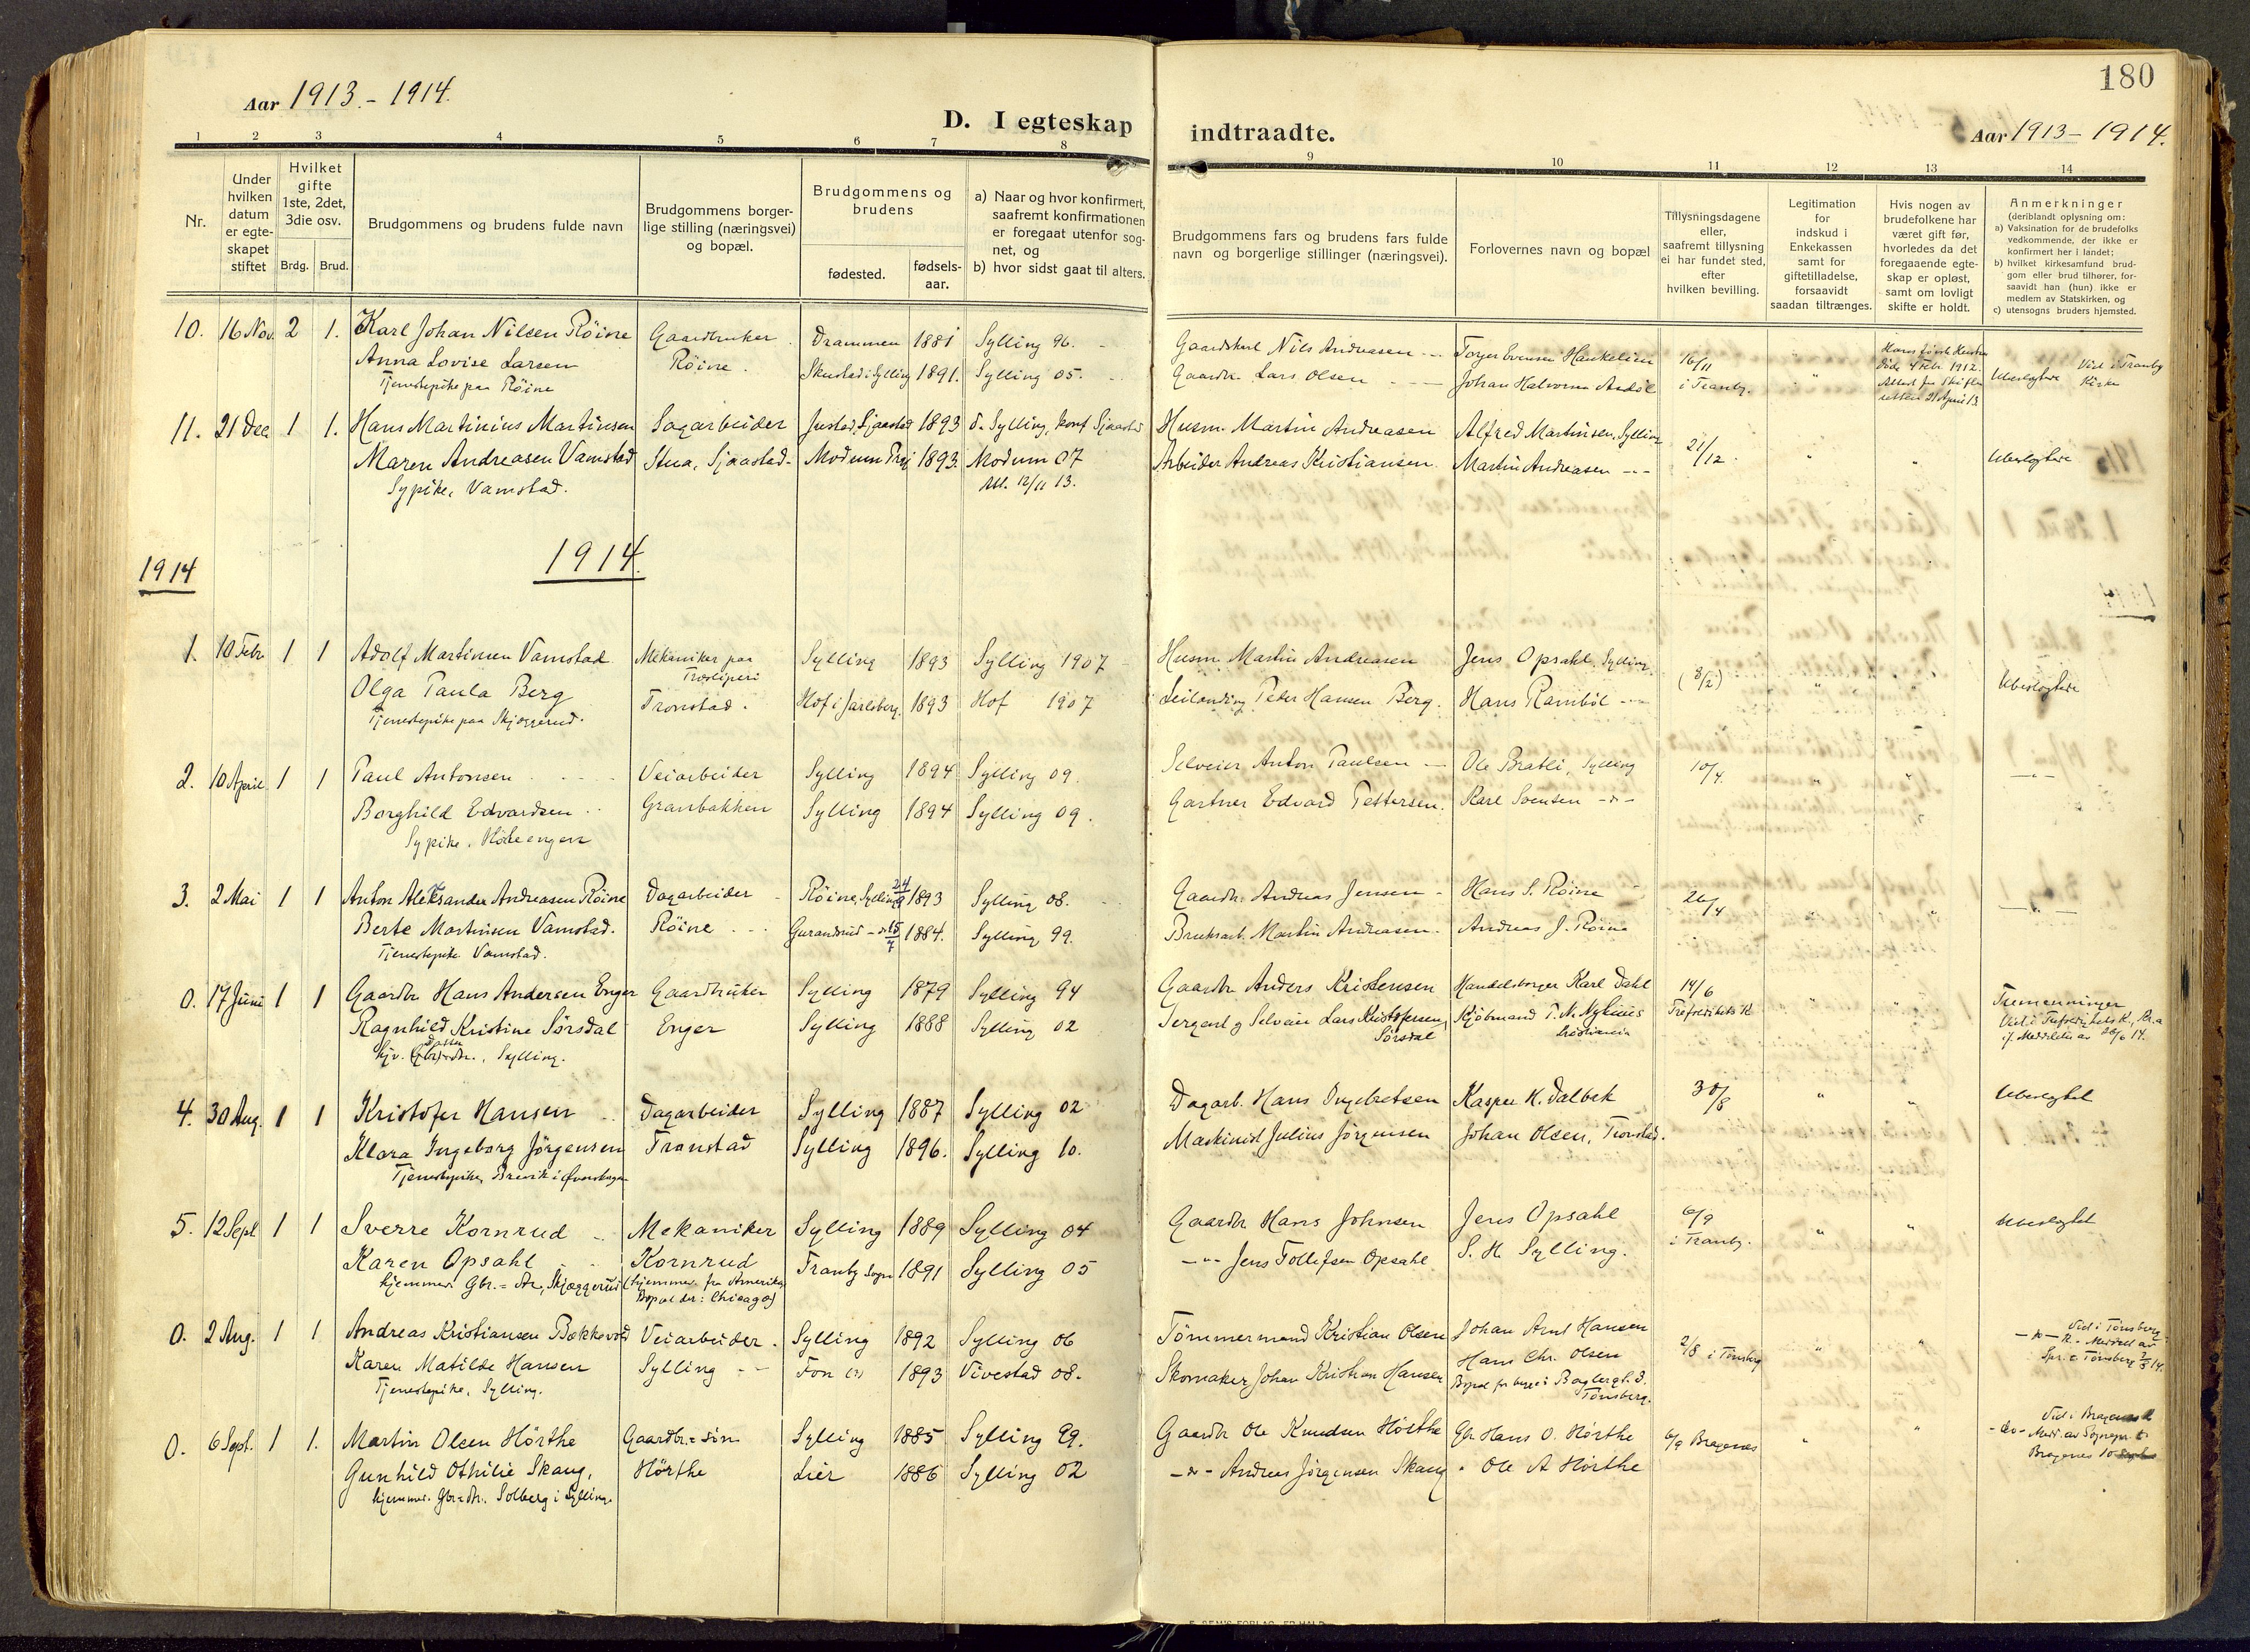 180
Aar 1913.-1914.
D. I egteskap indtraadte.
Aar 1913-1914.
1 2 3 4 5 6 7 8 9 10 11 12 13 14
Nr.
Under hvilken datum er egte-skapet stiftet
Hvilket gifte 1ste, 2det, 3die osv.
Brdg. Brud.
Brudgommens og brudens fulde navn
Brudgommens borger-lige stilling (næringsvei) og bopæl.
Brudgommens og brudens
fødested.
fødsels-aar.
a) Naar og hvor konfirmert, saafremt konfirmationen er foregaat utenfor sog-net, og
b) hvor sidst gaat til alters.
Brudgommens fars og brudens fars fulde navn og borgerlige stillinger (næringsvei).
Forlovernes navn og bopæl
Tillysningsdagene eller, saafremt tillysning ei har fundet sted, efter hvilken bevilling.
Legitimation for indskud i Enkekassen samt for giftetilladelse, forsaavidt saadan tiltrænges.
Hvis nogen av brudefolkene har været gift før, hvorledes da det foregaaende egte-skap er opløst, samt om lovligt skifte er holdt.
Anmerkninger (deriblandt oplysning om:
a) Vaksination for de brudefolks vedkommende, der ikke er konfirmert her i landet;
b) hvilket kirkesamfund brud-gom eller brud tilhører, for-saavidt han (hun) ikke er medlem av Statskirken, og
c) utensogns bruders hjemsted.
10. 16 Nov. 2 1. Karl Johan Nilsen Röine Gaardbruker Drammen 1881 Sylling 96. Gaardskarl Nils Andreasen Torger Evensen 16/11
Anna Lovise Larsen Röine. Skustad i Sylling 1891. Sylling 05. Gaardbr. Lars Olsen Johan Halvorsen i Tranby. Ubeslegtede Vied i Tranby Kirke
Tjenestepike paa Röine
11. 21 Dec 1 1. Hans Martinius Martinsen Sagarbeider 1893 Sylling, konf Sjaastad Husm. Martin Andreasen Alfred Martinsen, Sylling 21/12 Ubeslegtede
Maren Andreasen Vamstad Stua, Sjaastad Modum 1893. Modum 07 Arbeider Andreas Kristiansen. Martin Andreasen
Sypike, Vamstad. 12/11 13.
1914
1914.
1. 10 Febr. 1 1 Adolf Martinsen Vamstad Mekaniker paa Træsliperi Sylling 1893 Sylling 1907 Husm. Martin Andreasen Jens Opsahl, Sylling (8/2) Ubeslegtede
Olga Paula Berg Tronstad. Hof i Jarlsberg. 1893 Hof 1907 Leilending Peter Hansen Berg. Hans Ramböl
Tjenestepike paa Skjæggerud.
2. 10 April 1 1 Paul Antonsen Veiarbeider Sylling 1894 Sylling 09. Selveier Anton Paulsen Ole Bratli, Sylling 10/4.
Borghild Edvardsen Granbakken Sylling 1894 Sylling 09. Gartner Edvard Pettersen. Karl Svensen
Sypike,
3. 2 Mai 1 1 Anton Aleksander Andreasen Röine Dagarbeider Röine, Sylling 1893 Sylling 08. Gaardbr. Andreas Jensen Hans S. Röine 26/4
Berte Martinsen Vamstad. Röine 15/7 1884. Sylling 99. Bruksarb. Martin Andreasen. Andreas J. Röine
Tjenestepike Vamstad.
0. 17 Juni 1 1 Gaardbr Hans Andersen Enger Gaardbruker Sylling 1879 Sylling 94 Gaardbr Anders Kristensen Handelsborger Karl Dahl 14/6 Tremenninger
Ragnhild Kristine Sørsdal Enger Sylling 1888 Sylling 02 Sergent og Selveier Lars Kristofersen Sørsdal Kjöbmand Kristiania Trefoldighets K.
4. 30 Aug. 1 1 Kristofer Hansen Dagarbeider Sylling 1887 Sylling 02 Dagarb. Hans Ingebretsen Kasper H. Dalbek 30/8 Ubeslegtet
Klara Ingeborg Jörgensen Tronstad Sylling 1896. Sylling 10. Maskinist Julius Jörgensen Johan Olsen, Tronstad.
5. 12 Sept 1 1 Sverre Kornrud Mekaniker Sylling 1889 Sylling 04 Gaardbr Hans Johnsen Jens Opsahl 6/9 i Tranby. Ubeslegtet
Karen Opsahl Kornrud Tranby Sogn 1891 Sylling 05 Jens Tollefsen Opsahl S. H. Sylling.
hjemmev. Gbr.=dtr., Skjæggerud (hjemmev. fra Amerika. Bopæl der: Chicago)
0. 2 Aug. 1 1 Andreas Kristiansen Bækkevold Veiarbeider. Sylling 1892 Sylling 06 Tömmermand Kristian Olsen Johan Arnt Hansen 2/8 i Tönsberg Vied i Tönsberg
Karen Matilde Hansen Sylling Fon 1893 Vivestad 08. Skomaker Johan Kristian Hansen Hans Chr. Olsen
Tjenestepike, Sylling. Tönsberg.
0. 6 Sept. 1 1. Martin Olsen Hörthe Gaardbr.=sön Sylling 1885 Sylling 99. Gaardbr Ole Knudsen Hörthe Gbr Hans O. Hörthe 6/9 Bragenes
Gunhild Othilie Skaug, Hörthe Lier 1886 Sylling 02 Andreas Jörgensen Skaug Ole A Hörthe
hjemmev. Gbr=dtr. Solberg i Sylling.